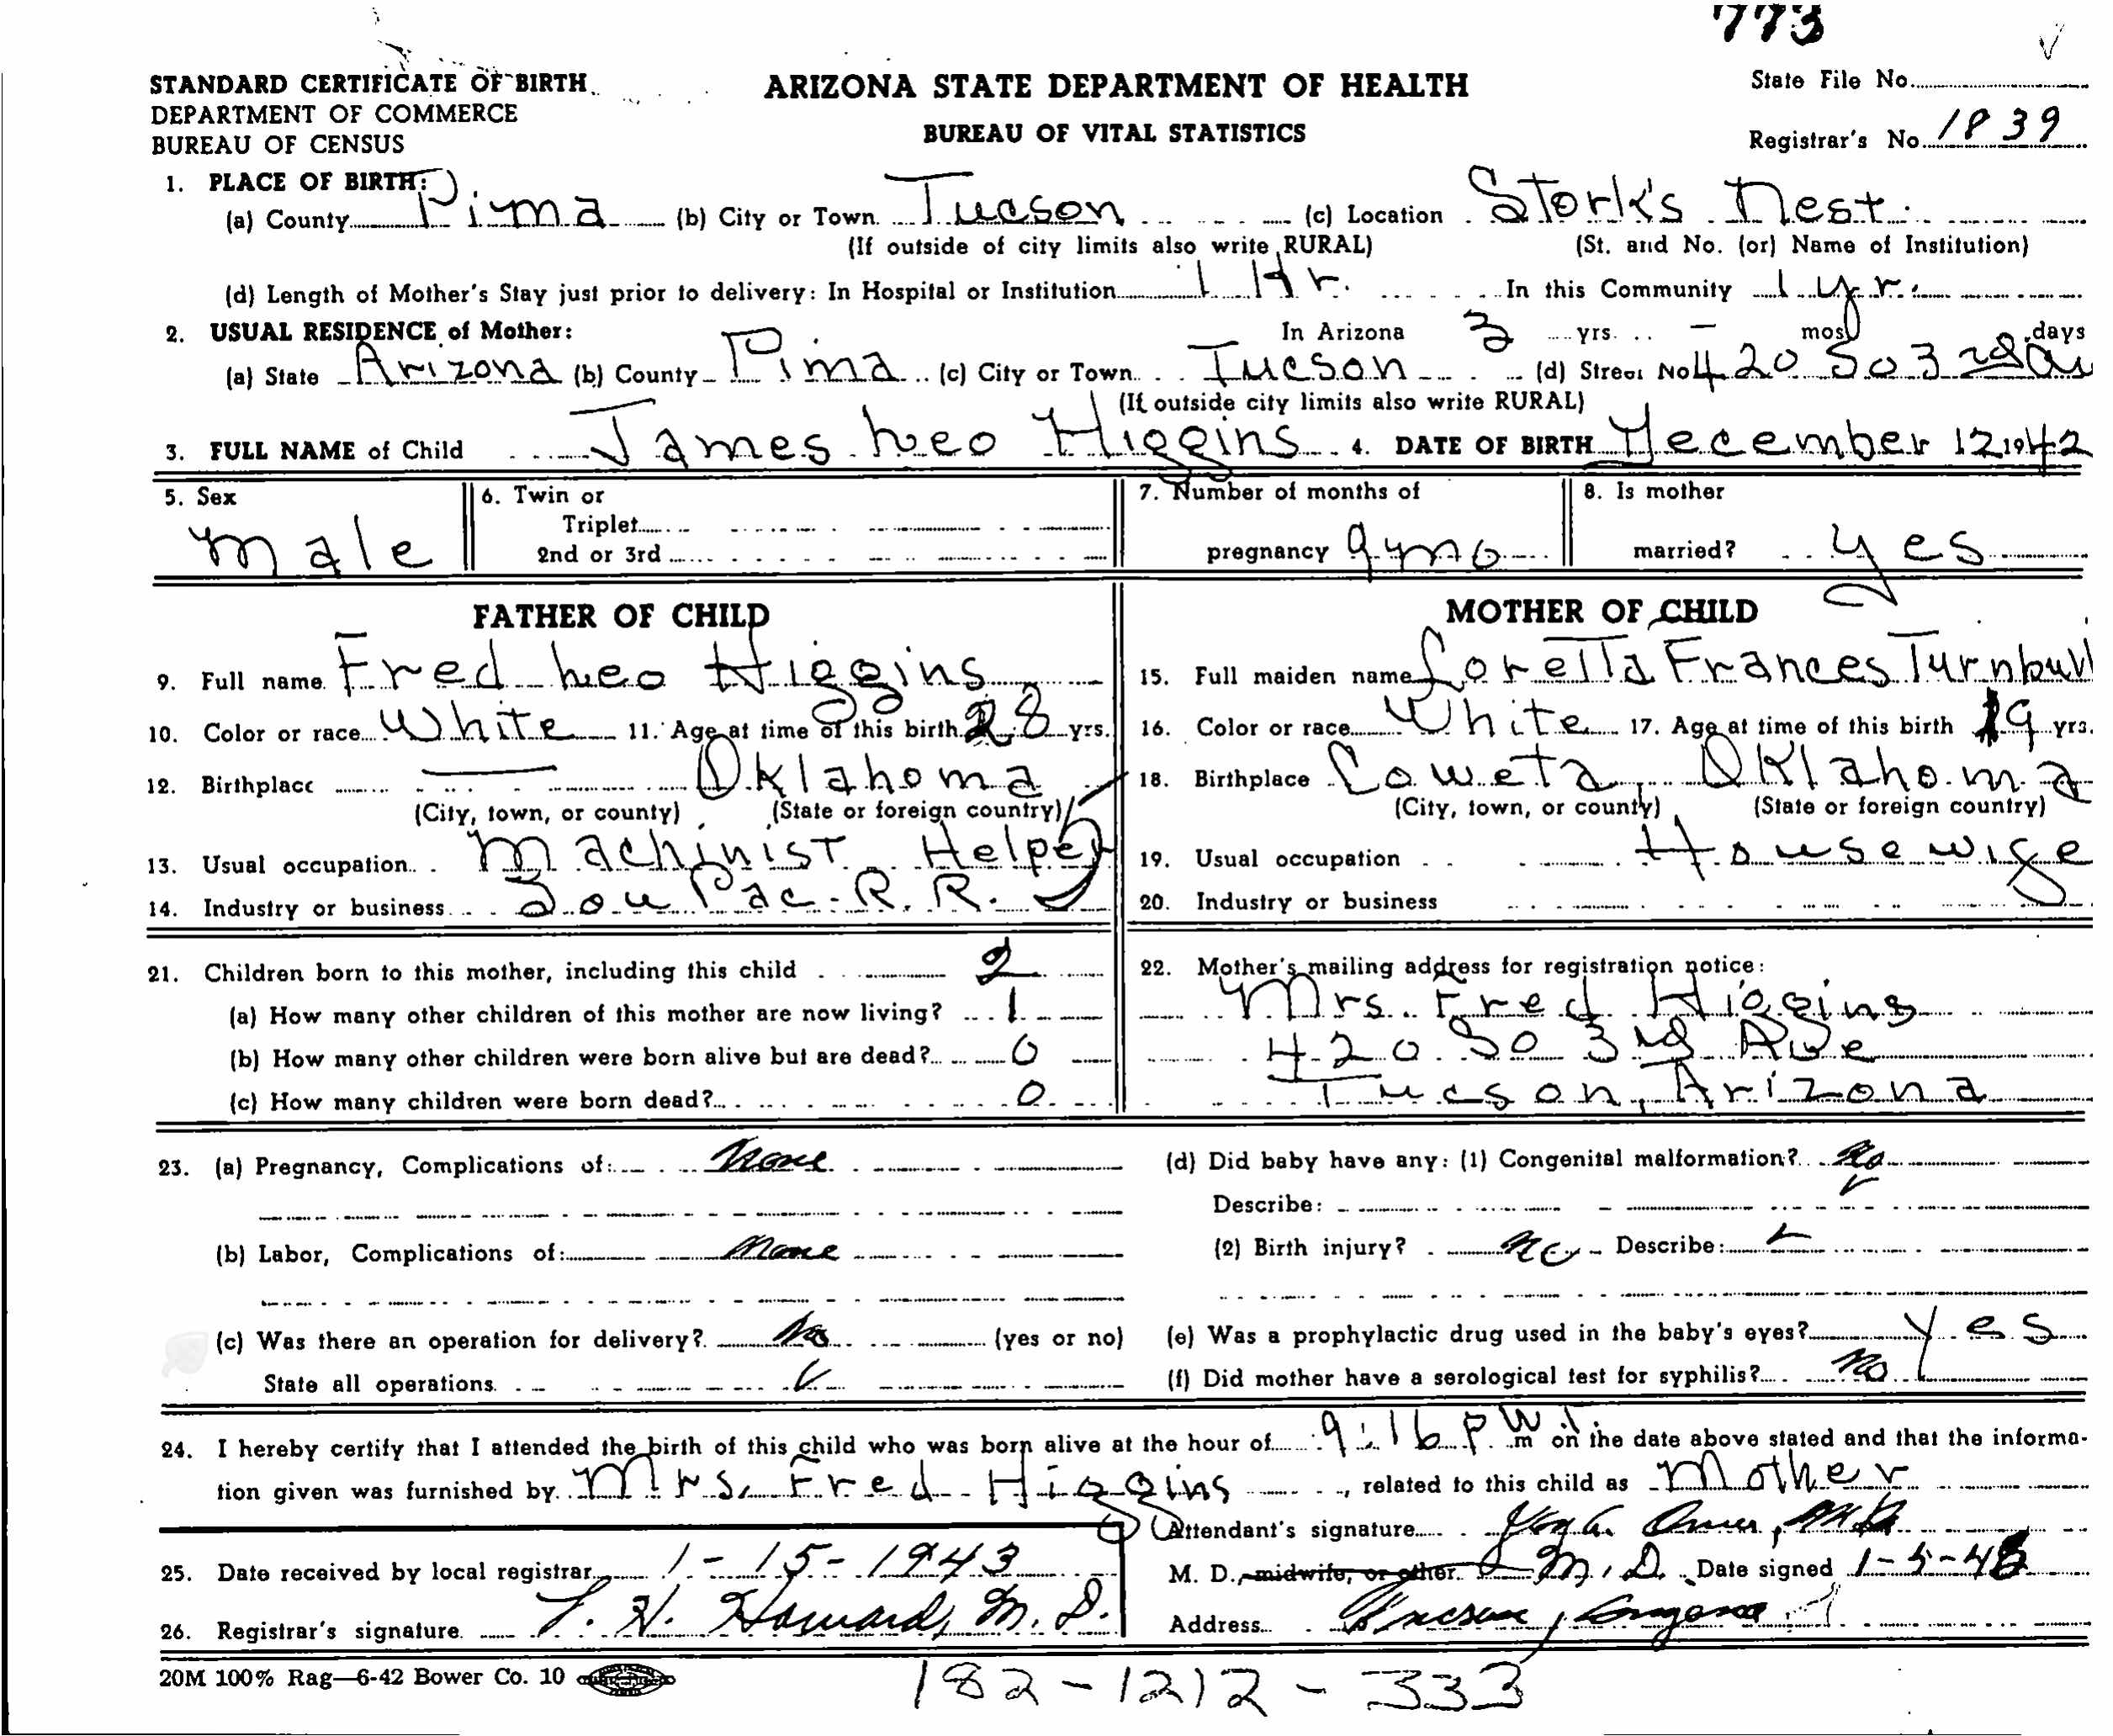 773
STANDARD CERTIFICATE OF BIRTH ARIZONA STATE DEPARTMENT OF HEALTH State File No.
DEPARTMENT OF COMMERCE
BUREAU OF VITAL STATISTICS
BUREAU OF CENSUS Registrar's No. 1839
1. PLACE OF BIRTH:
(a) County Pima (b) City or Town Tucson (c) Location Stork's Nest
(If outside of city limits also write RURAL) (St. and No. (or) Name of Institution)
(d) Length of Mother's Stay just prior to delivery: In Hospital or Institution 1 Hr. In this Community 1 yr.
2. USUAL RESIDENCE of Mother: In Arizona 3 yrs. – mos. days
(a) State Arizona (b) County Pima (c) City or Town Tucson (d) Street No. 420 So 3rd Av
(If outside city limits also write RURAL)
3. FULL NAME of Child James Leo Higgins 4. DATE OF BIRTH December 12 1942
5. Sex 6. Twin or 7. Number of months of 8. Is mother
Triplet
male 2nd or 3rd pregnancy 9 mo married? yes
FATHER OF CHILD MOTHER OF CHILD
9. Full name Fred Leo Higgins 15. Full maiden name Loretta Frances Turnbull
10. Color or race White 11. Age at time of this birth 28 yrs. 16. Color or race White 17. Age at time of this birth 19 yrs.
12. Birthplace — Oklahoma 18. Birthplace Coweta, Oklahoma
(City, town, or county) (State or foreign country) (City, town, or county) (State or foreign country)
13. Usual occupation Machinist Helper 19. Usual occupation Housewife
14. Industry or business Sou Pac. R. R. 20. Industry or business
21. Children born to this mother, including this child 2 22. Mother's mailing address for registration notice:
(a) How many other children of this mother are now living? 1 Mrs. Fred Higgins
(b) How many other children were born alive but are dead? 0 420 So 3rd Ave
(c) How many children were born dead? 0 Tucson, Arizona
23. (a) Pregnancy, Complications of: None (d) Did baby have any: (1) Congenital malformation? No
Describe:
(b) Labor, Complications of: None (2) Birth injury? No Describe:
(c) Was there an operation for delivery? No (yes or no) (e) Was a prophylactic drug used in the baby's eyes? Yes
State all operations. (f) Did mother have a serological test for syphilis? No
24. I hereby certify that I attended the birth of this child who was born alive at the hour of 9:16 P. W.T. m on the date above stated and that the informa-
tion given was furnished by Mrs. Fred Higgins, related to this child as Mother
Attendant's signature M.D.
25. Date received by local registrar 1-15-1943 M. D., midwife, or other. M. D. Date signed 1-5-43
26. Registrar's signature L. H. Howard, M. D. Address Tucson, Arizona
20M 100% Rag—6-42 Bower Co. 10
182-1212-333